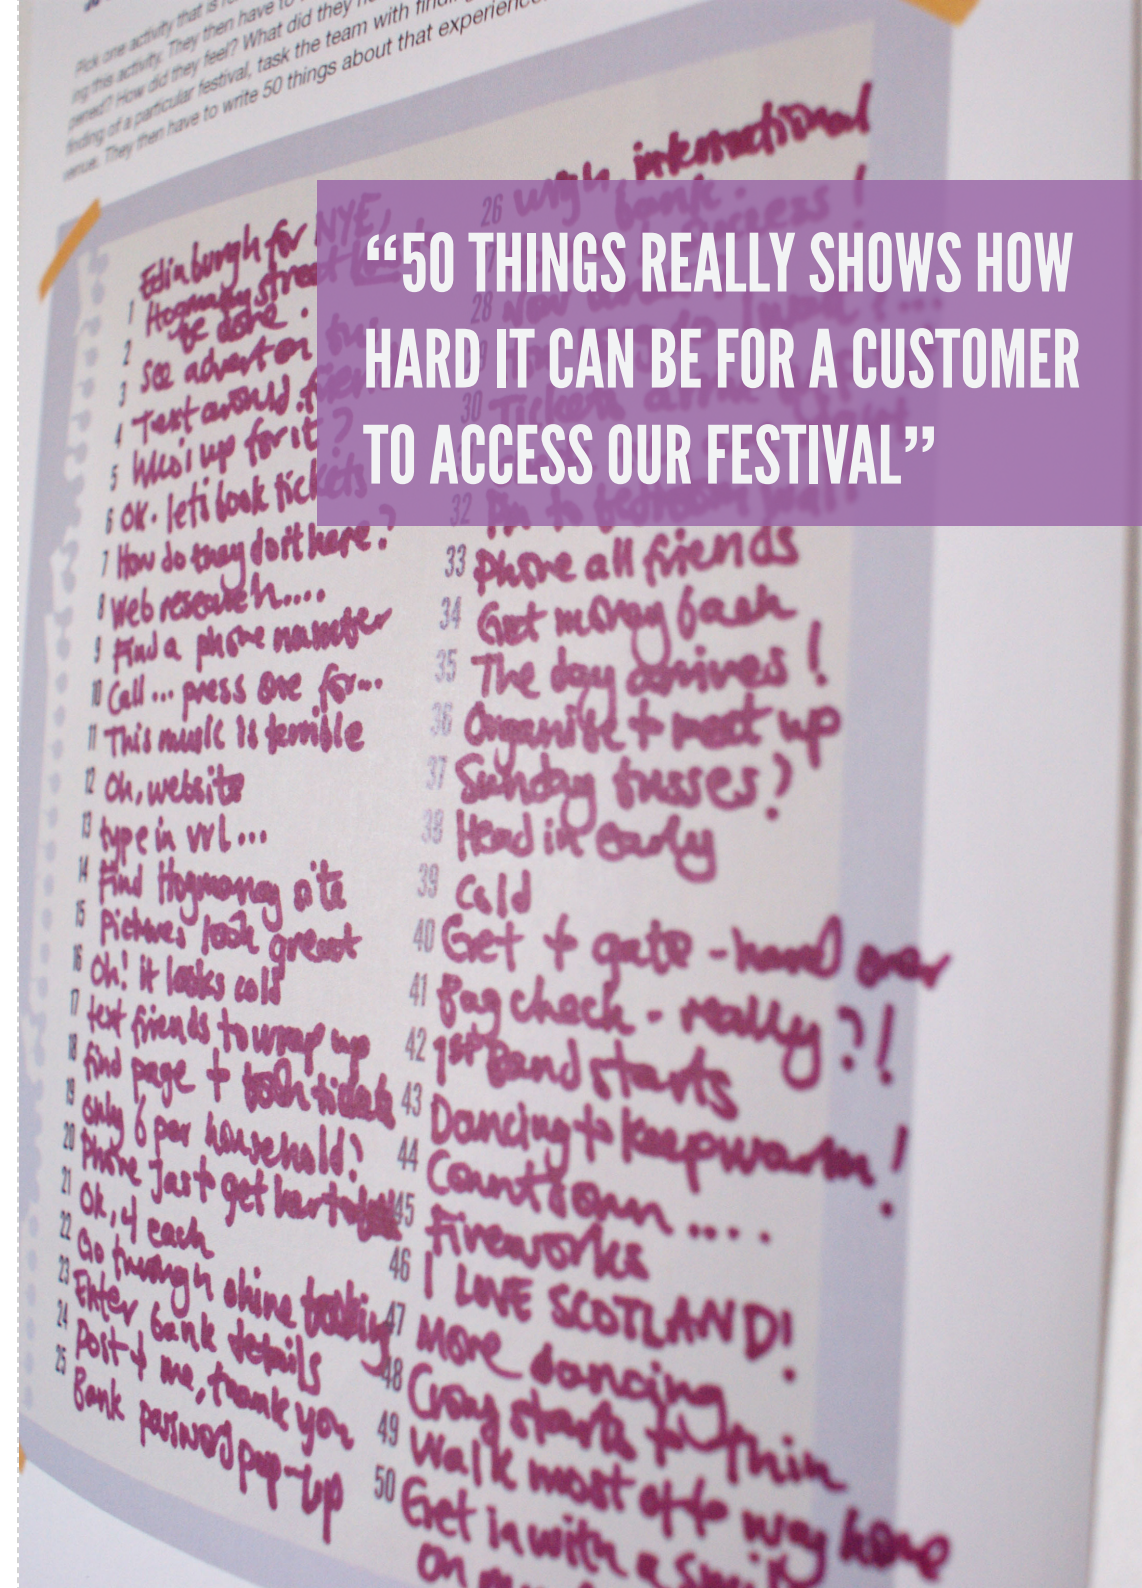 Pick one activity that is
ing this activity. They then have to
pened? How did they feel? What did they
finding of a particular festival, task the team with
venue. They then have to write 50 things about that experience.
“50 THINGS REALLY SHOWS HOW
HARD IT CAN BE FOR A CUSTOMER
TO ACCESS OUR FESTIVAL”
Edinburgh for NYE,
1 Hogmanay street
be done.
2 See advert on
3 Text around
4 Who's up for it?
5 OK. let's book tickets
6 How do they do it here?
7 Web research....
8 Find a phone number
9 Call... press one for...
10 This music is terrible
11 Oh, website
12 type in url...
13 Find Hogmanay site
14 Pictures look great
15 Oh! it looks cold
16 text friends to wrap up
17 find page + book tickets
18 only 6 per household?
19 Phone Jas to get her to
20 Ok, 4 each
21 Go through online booking
22 Enter bank details
23 Post to me, thank you
24 Bank password pop-up
25
26 international
bank
28 Now
30 Tickets arrive
32 Pin to bedroom wall
33 Phone all friends
34 Get money back
35 The day arrives!
36 Organise + meet up
37 Sunday busses?
38 Head in early
39 Cold
40 Get to gate - hand over
41 Bag check - really?!
42 1st Band starts
43 Dancing to keep warm!
44 Countdown....
45 Fireworks
46 I LOVE SCOTLAND!
47 More dancing
48 Crowd starts to thin
49 Walk most of the way home
50 Get in with a smile
on